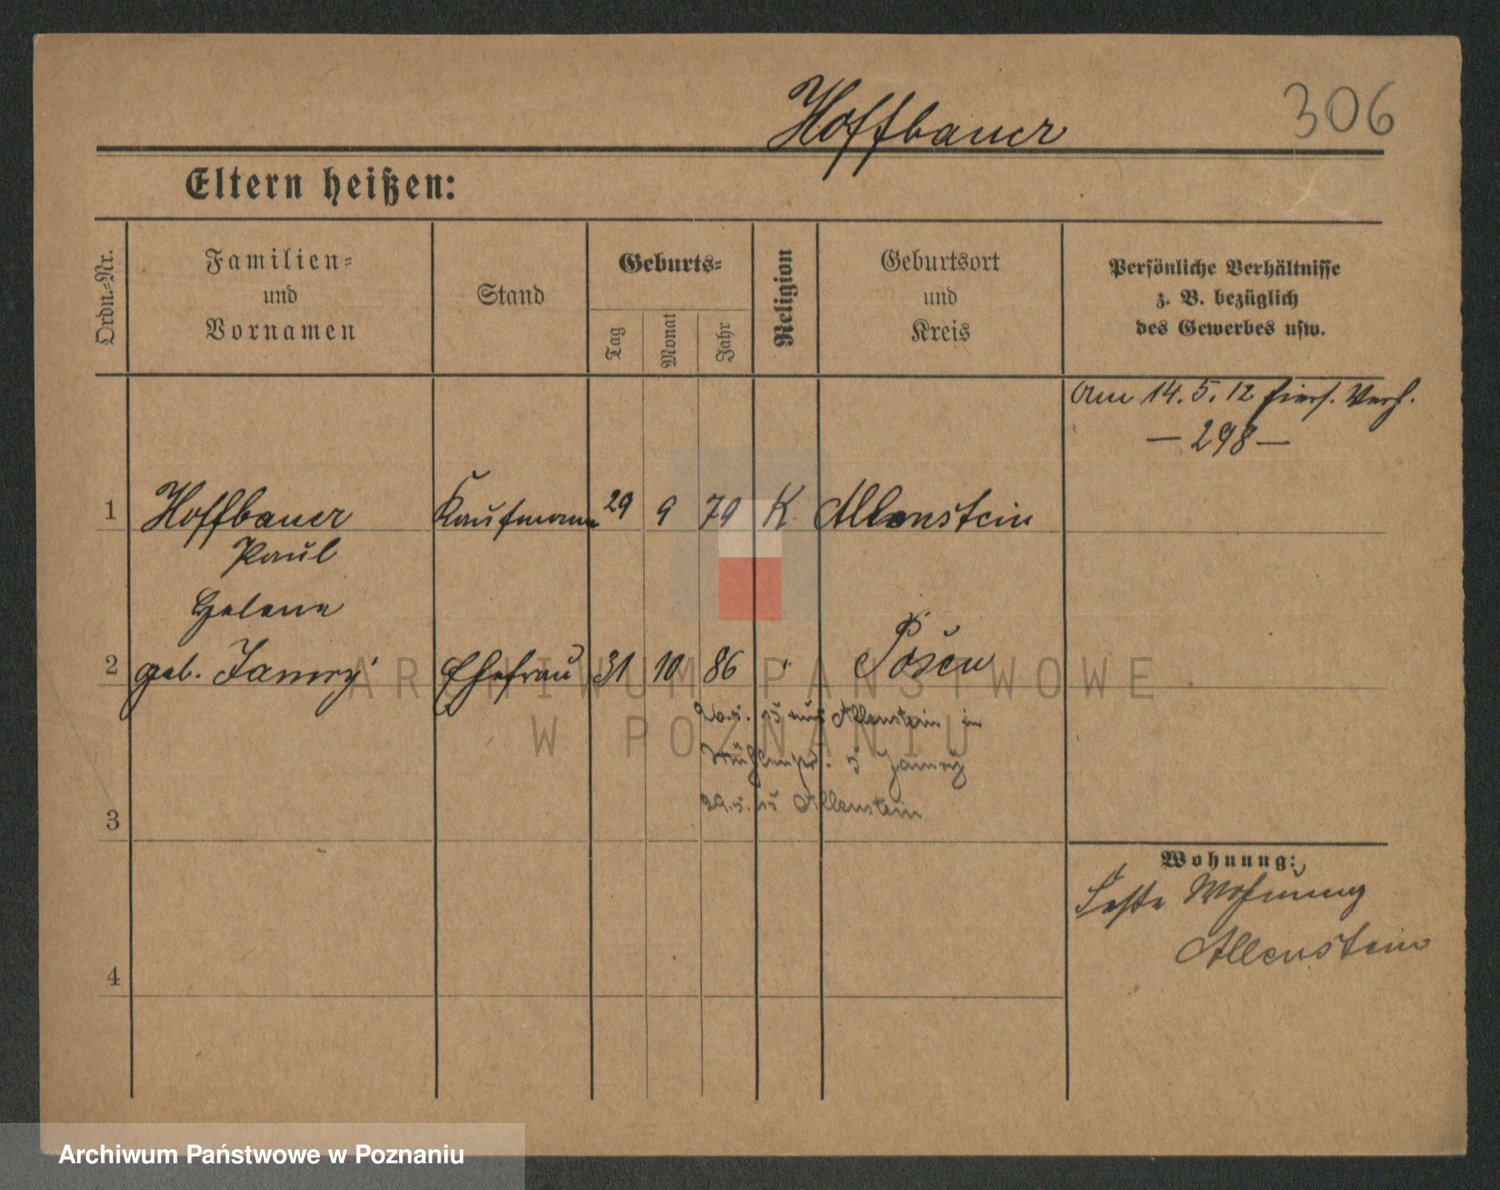 Hoffbauer
306
Eltern heißen:
Ordn.-Nr.
Familien-
und
Vornamen
Stand
Geburts-
Tag
Monat
Jahr
Religion
Geburtsort
und
Kreis
Persönliche Verhältnisse
z. B. bezüglich
des Gewerbes usw.
Am 14. 5. 12 hiers. Verh.
— 298 —
1 Hoffbauer Kaufmann 29 9 79 K Allenstein
Paul
Helene
2 geb. Ehefrau 31 10 86 " Posen
aus Allenstein in
Allenstein
3
4
Wohnung:
Letzte Wohnung
Allenstein
ARCHIWUM PAŃSTWOWE
W POZNANIU
Archiwum Państwowe w Poznaniu